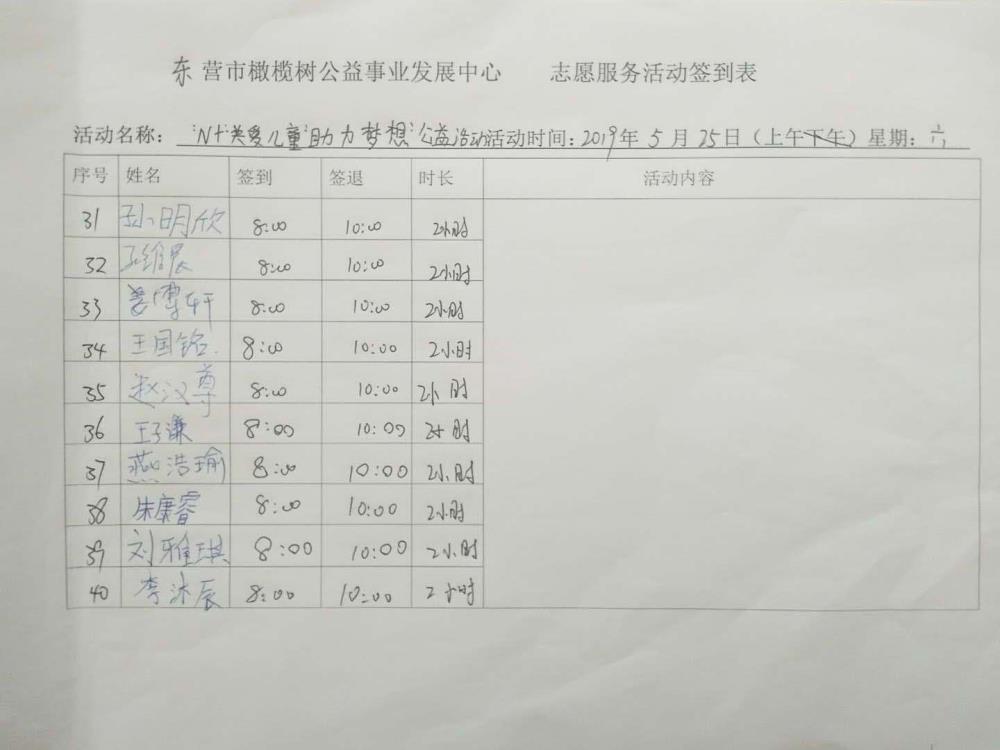 东营市橄榄树公益事业发展中心 志愿服务活动签到表
活动名称：“N+关爱儿童”助力梦想”公益活动活动时间：2019年5月25日（上午下午）星期：六
序号 姓名 签到 签退 时长 活动内容
31 孙明欣 8:00 10:00 2小时
32 8:00 10:00 2小时
33 姜博轩 8:00 10:00 2小时
34 王国铭 8:00 10:00 2小时
35 赵汉尊 8:00 10:00 2小时
36 王子谦 8:00 10:00 2小时
37 燕浩瑜 8:00 10:00 2小时
38 朱康睿 8:00 10:00 2小时
39 刘雅琪 8:00 10:00 2小时
40 李沐辰 8:00 10:00 2小时